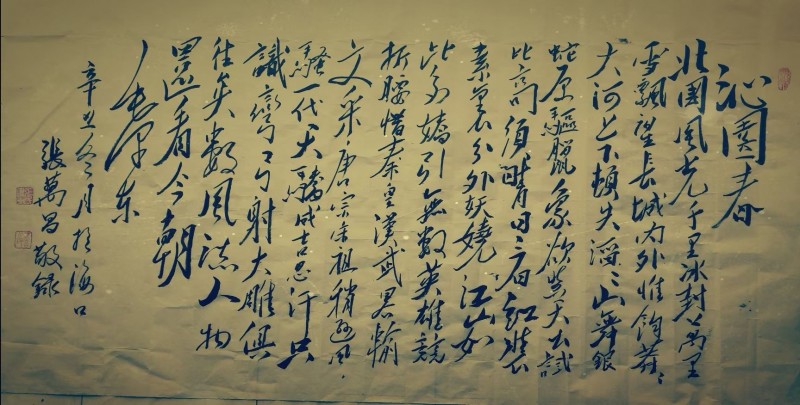 沁園春
北國風光千里冰封萬里
雪飄望長城內外惟餘莽々
大河上下頓失滔々山舞銀
蛇原驅臘象欲與天公試
比高須晴日看紅裝
素裹分外妖嬈江山如
此多嬌引無數英雄競
折腰惜秦皇漢武略輸
文采唐宗宋祖稍遜風
騷一代天驕成吉思汗只
識彎弓射大雕俱
往矣數風流人物
還看今朝
毛澤东
辛丑冬月於海口
張萬昌敬錄